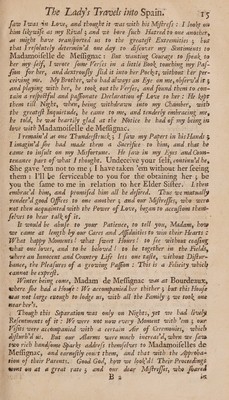 The Lady's Travels into Spain. 15
saw I was in Love, and thought it was with his Mistress: I look on
him likewise as my Rival; and we bore such Hatred to one another,
as might have transported us to the greatest Extremities; but
that I resolutely determin'd one day to discover my Sentiments to
Madamoiselle de Messignac: But wanting Courage to speak to
her my self, I wrote some Verses in a little Book touching my Pas-
sion for her, and dextrously slid it into her Pocket, without her per-
ceiving me. My Brother, who had always an Eye on me, observ'd it;
and playing with her, he took out the Verses, and found them to con-
tain a respectful and passionate Declaration of Love to her: He kept
them till Night, when, being withdrawn into my Chamber, with
the greatest Inquietude, he came to me, and tenderly embracing me,
he told, he was heartily glad at the Notice he had of my being in
love with Madamoiselle de Messignac.
I remain'd as one Thunderstruck; I saw my Papers in his Hands;
I imagin'd she had made them a Sacrifice to him, and that he
came to insult on my Misfortune. He saw in my Eyes and Coun-
tenance part of what I thought. Undeceive your self, continu'd he,
She gave 'em not to me; I have taken 'em without her seeing
them: I'll be serviceable to you for the obtaining her; be
you the same to me in relation to her Elder Sister. I then
embrac'd him, and promised him all he desired. Thus we mutually
render'd good Offices to one another; and our Mistresses, who were
not then acquainted with the Power of Love, began to accustom them-
selves to hear talk of it.
It would be abuse to your Patience, to tell you, Madam, how
we came at length by our Cares and Assiduities to win their Hearts:
What happy Moments! what sweet Hours! to see without ceasing
what one loves, and to be beloved! to be together in the Fields,
where an Innocent and Country Life lets one taste, without Distur-
bance, the Pleasures of a growing Passion: This is a Felicity which
cannot be express'd.
Winter being come, Madam de Messignac was at Bourdeaux,
where she had a House: We accompanied her thither; but this House
was not large enough to lodge us, with all the Family; we took one
near her's.
Though this Separation was only on Nights, yet we had lively
Resentments of it: We were not now every Moment with 'em; our
Visits were accompanied with a certain Air of Ceremonies, which
disturb'd us. But our Alarms were much increas'd, when we saw
two rich handsome Sparks address themselves to Madamoiselles de
Messignac, and earnestly court them, and that with the Approba-
tion of their Parents. Good God, how we look'd! Their Proceedings
went on at a great rate; and our dear Mistresses, who shared
B 2 in